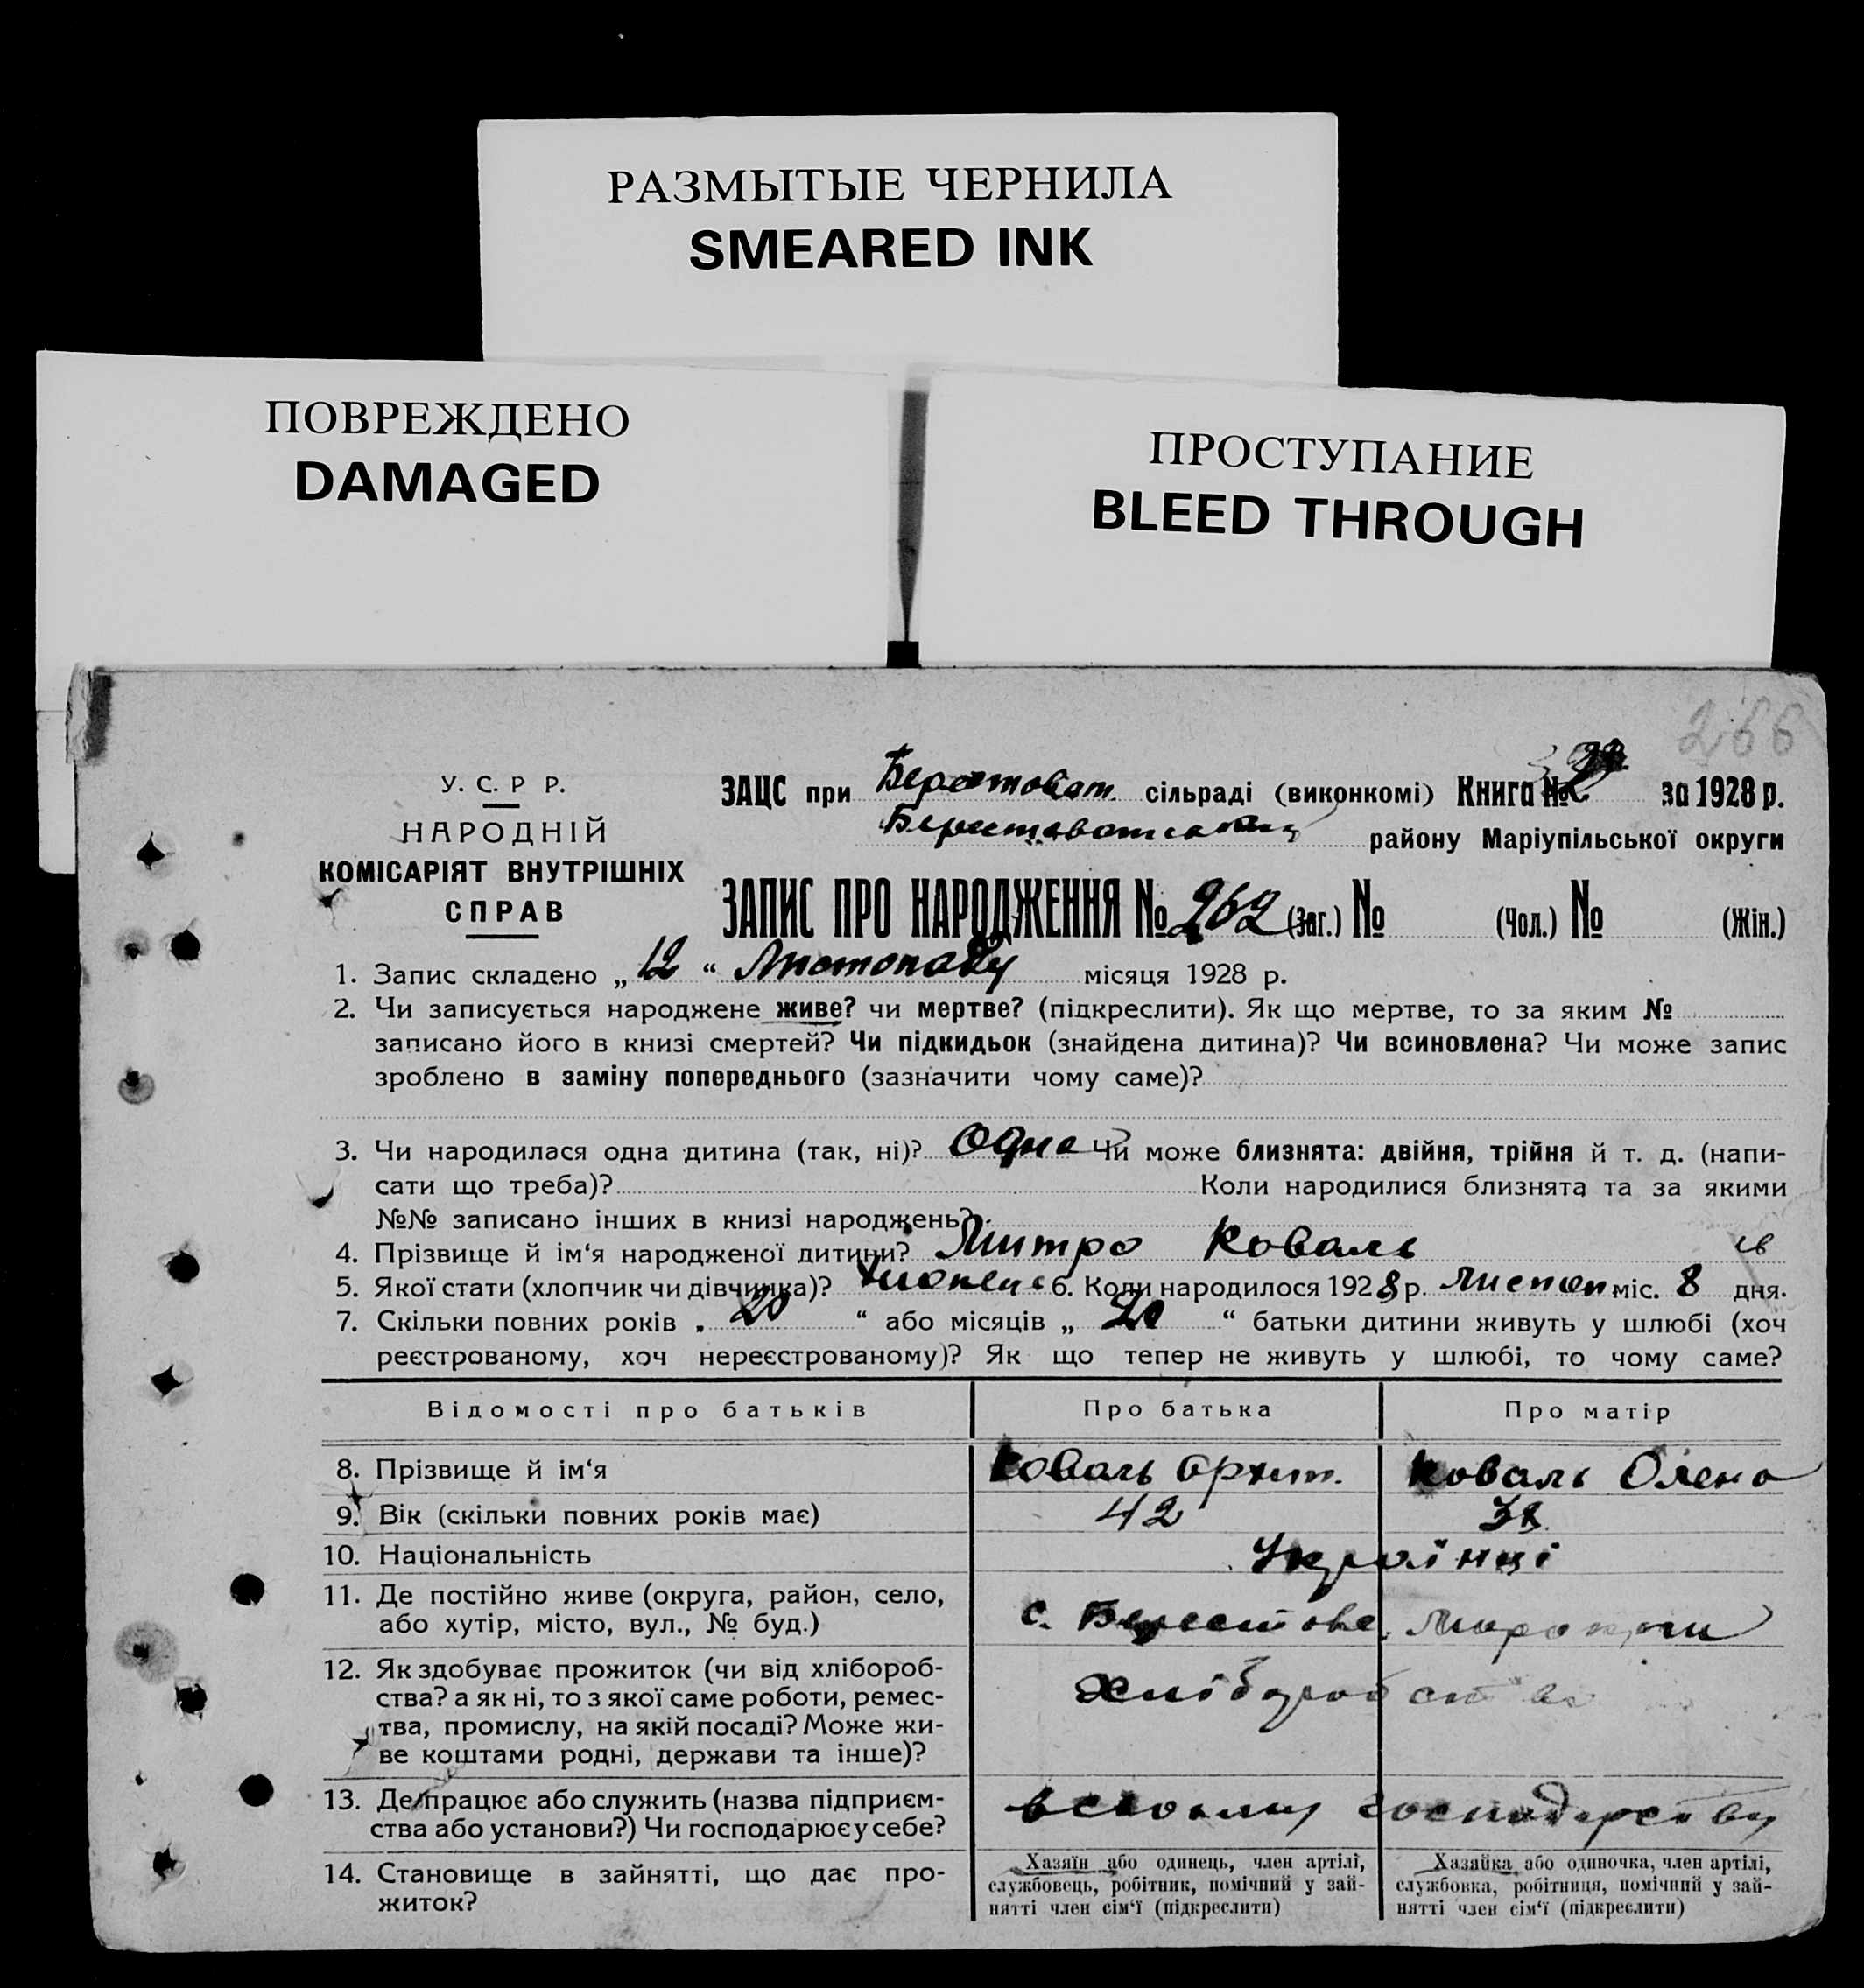 РАЗМЫТЫЕ ЧЕРНИЛА
SMEARED INK
ПОВРЕЖДЕНО
DAMAGED
ПРОСТУПАНИЕ
BLEED THROUGH
266
У. С. Р Р.
НАРОДНІЙ
КОМІСАРІЯТ ВНУТРІШНІХ
СПРАВ
ЗАЦС при Берестоват. сільраді (виконкомі) Книга № за 1928 р.
району Маріупільської округи
ЗАПИС ПРО НАРОДЖЕННЯ № 262 (Заг.) № (Чол.) № (Жін.)
1. Запис складено „ 12 “ Листопаду місяця 1928 р.
2. Чи записується народжене живе? чи мертве? (підкреслити). Як що мертве, то за яким №
записано його в книзі смертей? Чи підкидьок (знайдена дитина)? Чи всиновлена? Чи може запис
зроблено в заміну попереднього (зазначити чому саме)?
3. Чи народилася одна дитина (так, ні)? Одна Чи може близнята: двійня, трійня й т. д. (напи-
сати що треба)? Коли народилися близнята та за якими
№№ записано інших в книзі народжень?
4. Прізвище й ім‘я народженої дитини? Митро Коваль
5. Якої стати (хлопчик чи дівчинка)? 6. Коли народилося 1928 р. Листоп міс. 8 дня.
7. Скільки повних років „ 20 “ або місяців „ “ батьки дитини живуть у шлюбі (хоч
реєстрованому, хоч нереєстрованому)? Як що тепер не живуть у шлюбі, то чому саме?
Відомості про батьків Про батька Про матір
8. Прізвище й ім‘я Коваль Архип. Коваль Олена
9. Вік (скільки повних років має) 42 38
10. Національність Українці
11. Де постійно живе (округа, район, село,
або хутір, місто, вул., № буд.) с. Берестове,
12. Як здобуває прожиток (чи від хлібороб-
ства? а як ні, то з якої саме роботи, ремес-
тва, промислу, на якій посаді? Може жи-
ве коштами родні, держави та інше)? Хліборобство
13. Де працює або служить (назва підприєм-
ства або установи?) Чи господарює у себе? в своєму господарству
14. Становище в зайнятті, що дає про-
житок?
Хазяїн або одинець, член артілі,
службовець, робітник, помічний у зай-
нятті член сім‘ї (підкреслити)
Хазяйка або одиночка, член артілі,
службовка, робітниця, помічний у зай-
нятті член сім‘ї (підкреслити)